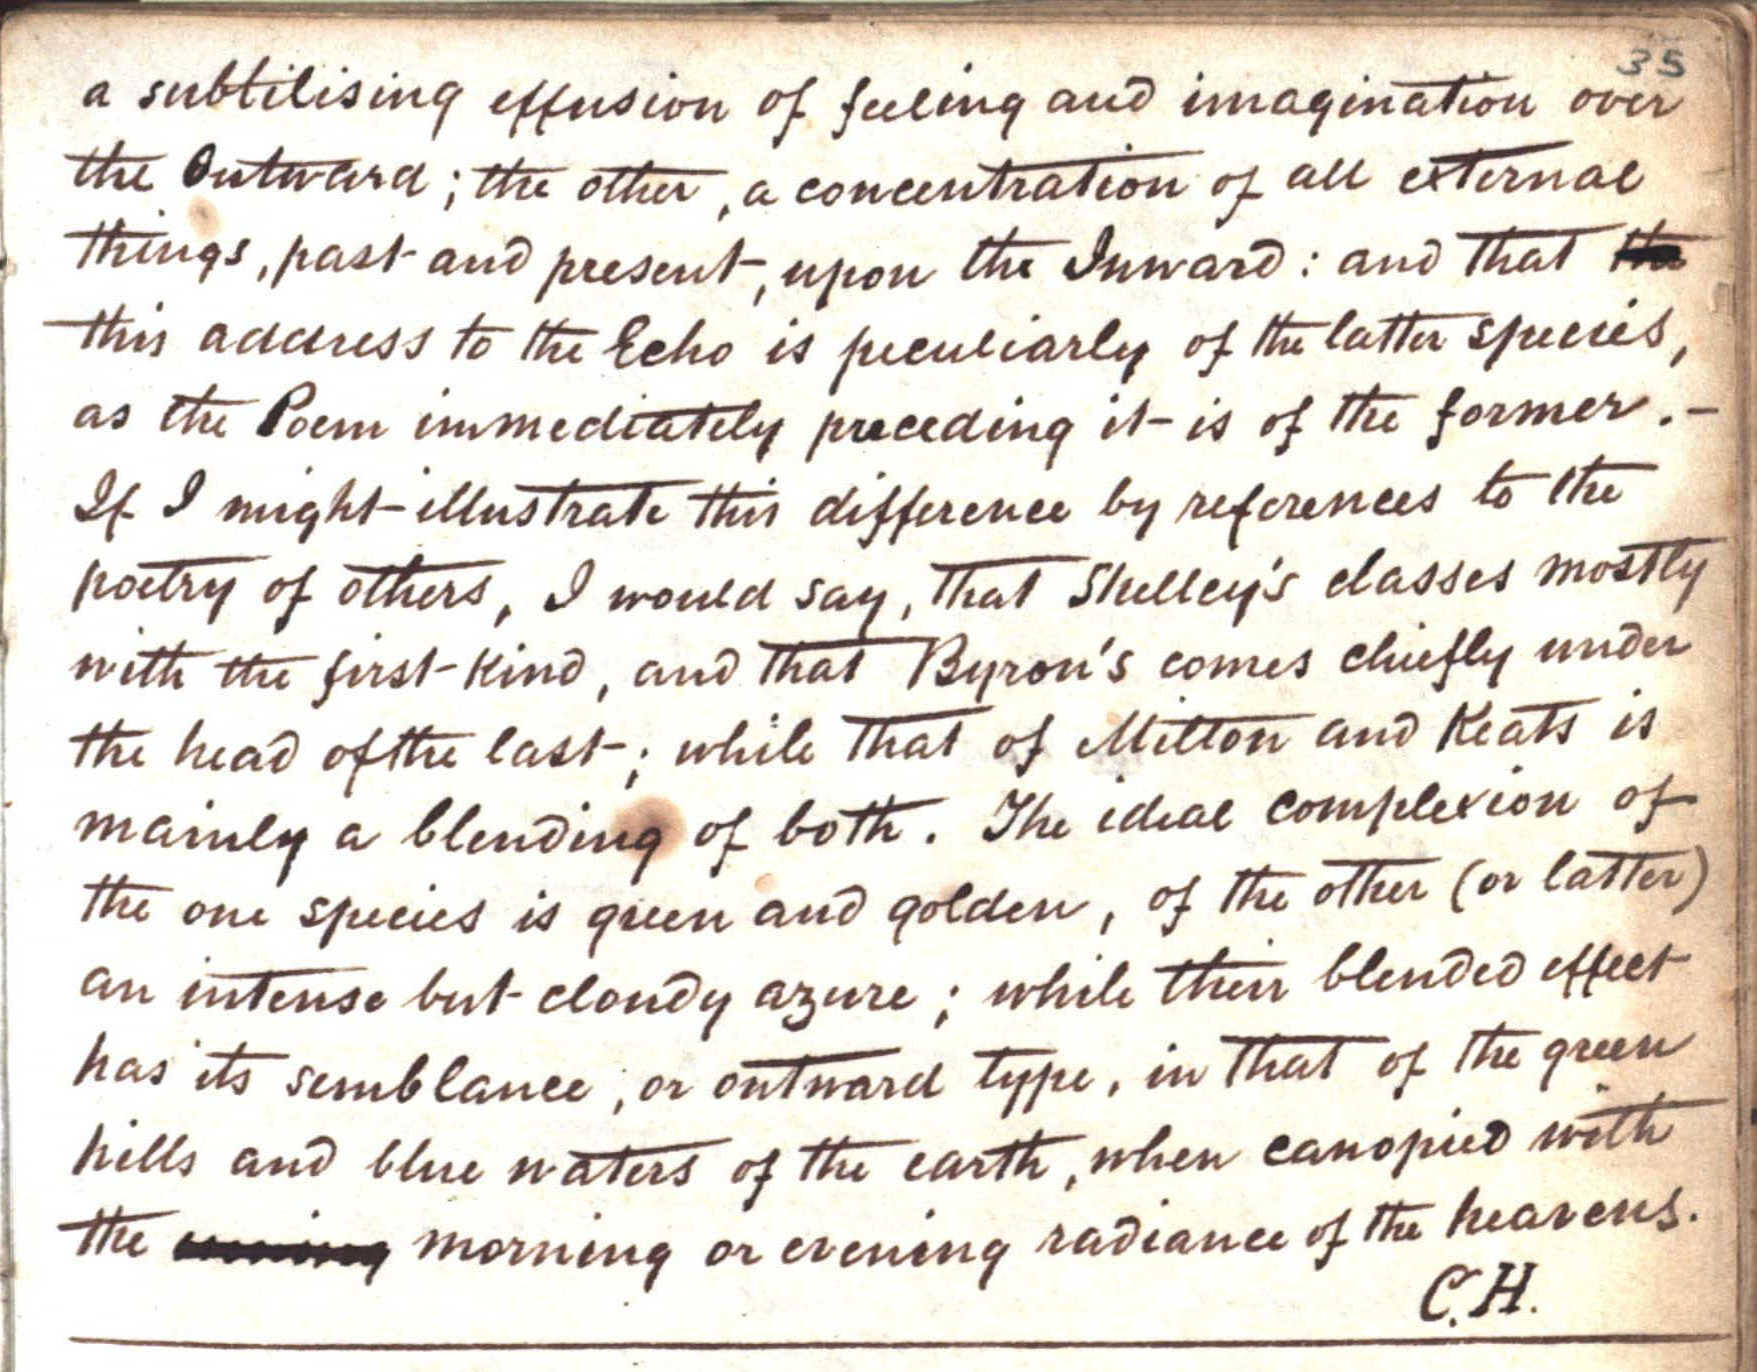 35
a subtilising effusion of feeling and imagination over
the Outward; the other, a concentration of all external
things, past and present, upon the Inward: and that the
this address to the Echo is peculiarly of the latter species,
as the Poem immediately preceding it is of the former. –
If I might illustrate this difference by references to the
poetry of others, I would say, that Shelley's classes mostly
with the first kind, and that Byron's comes chiefly under
the head of the last; while that of Milton and Keats is
mainly a blending of both. The ideal complexion of
the one species is green and golden, of the other (or latter)
an intense but cloudy azure; while their blended effect
has its semblance, or outward type, in that of the green
hills and blue waters of the earth, when canopied with
the morning or evening radiance of the heavens.
C.H.